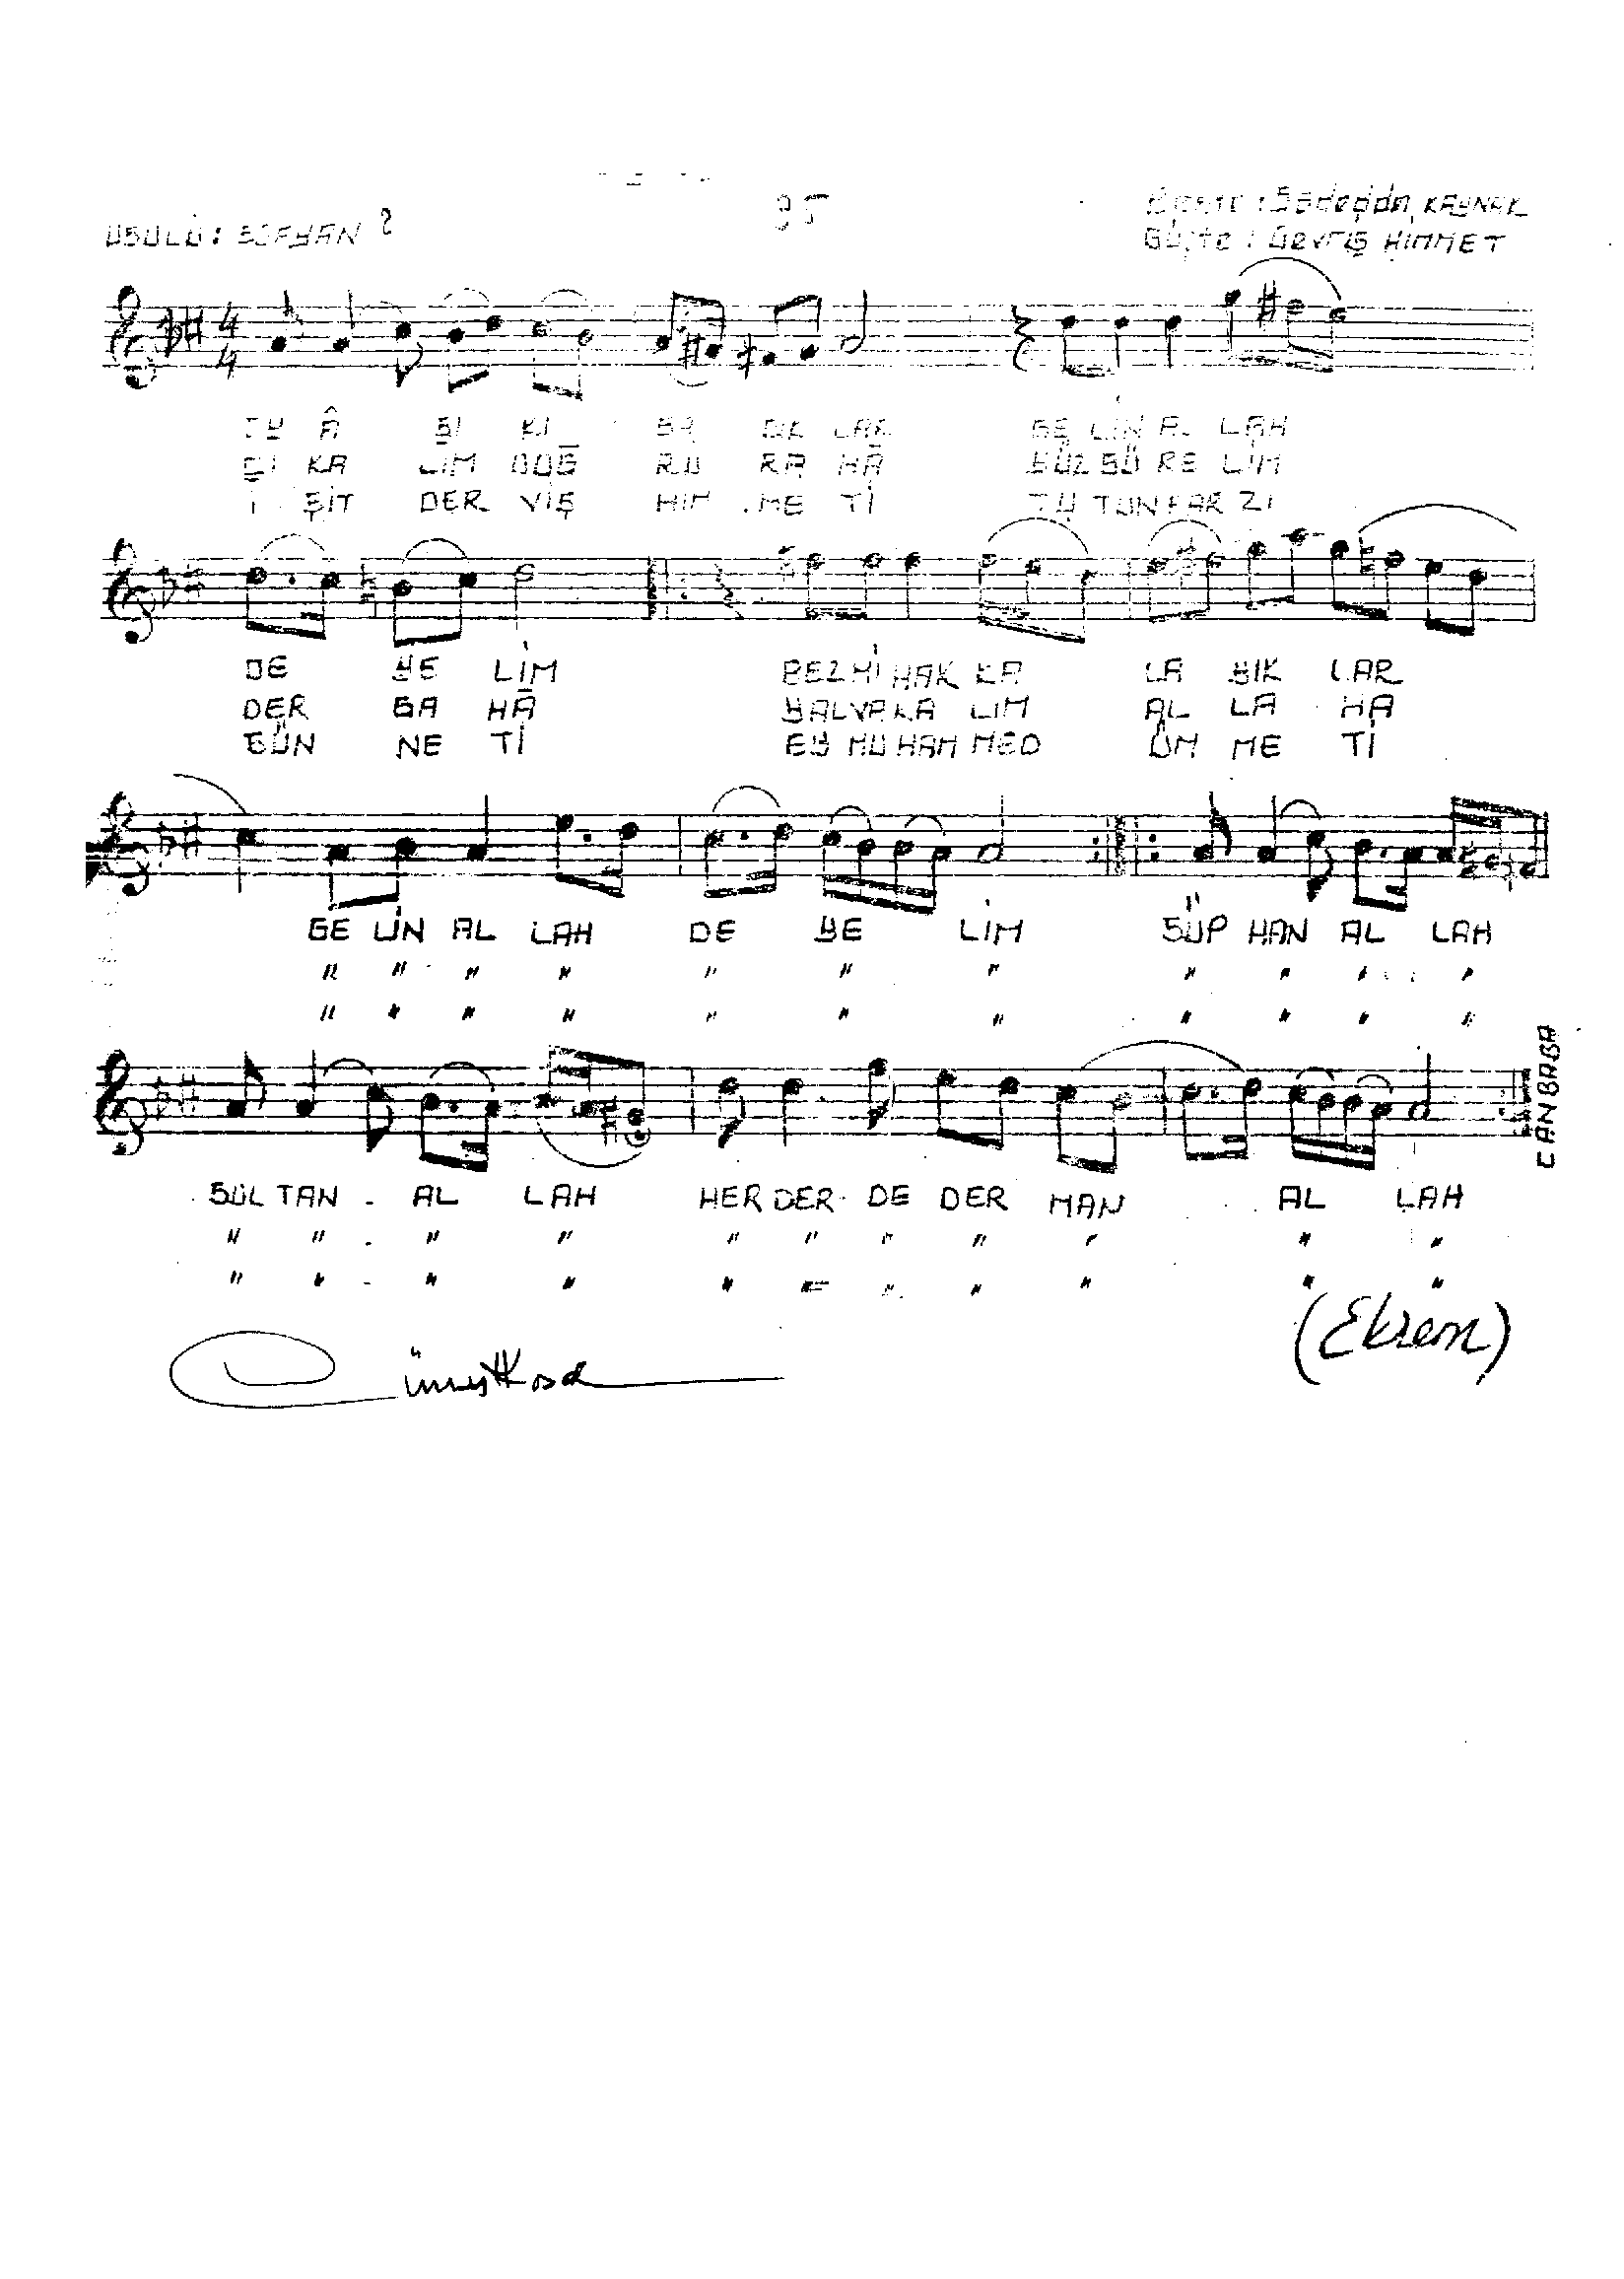 USULÜ: SOFYAN
95
Beste : Sadeddin KAYNAK
Güfte : DERVİŞ HİMMET
4/4
EY Â ŞI KI SA DIK LAR GE LİN AL LAH
ÇI KA LIM DOĞ RU RA HĀ YÜZ SÜ RE LİM
İ ŞİT DER VİŞ HİM ME Tİ TU TUN FAR ZI
DE YE LİM BEZMİ HAK KA LA YIK LAR
DER GA HĀ YALVARA LIM AL LA HA
SÜN NE Tİ EY MU HAM MED ÜM ME Tİ
GE LİN AL LAH DE YE LİM SÜP HAN AL LAH
" " " " " " " " " " "
" " " " " " " " " " "
SÜL TAN - AL LAH HER DER DE DER MAN AL LAH
" " - " " " " " " " " "
" " - " " " " " " " " "
CANBABA
(Ekrem)